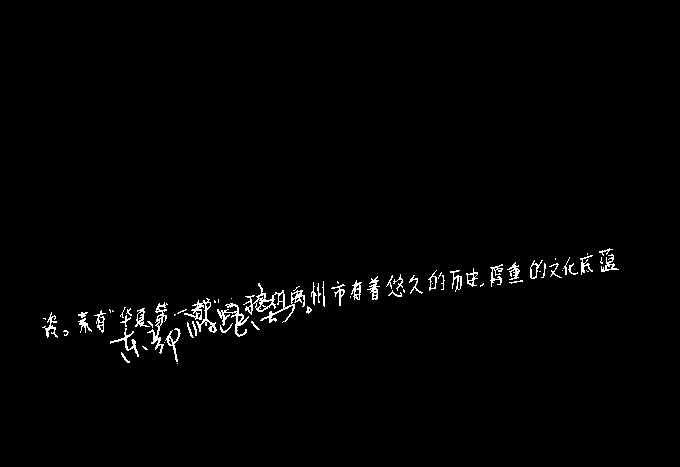 资。素有“华夏第一都”之称的禹州市有着悠久的历史,厚重的文化底蕴
东部